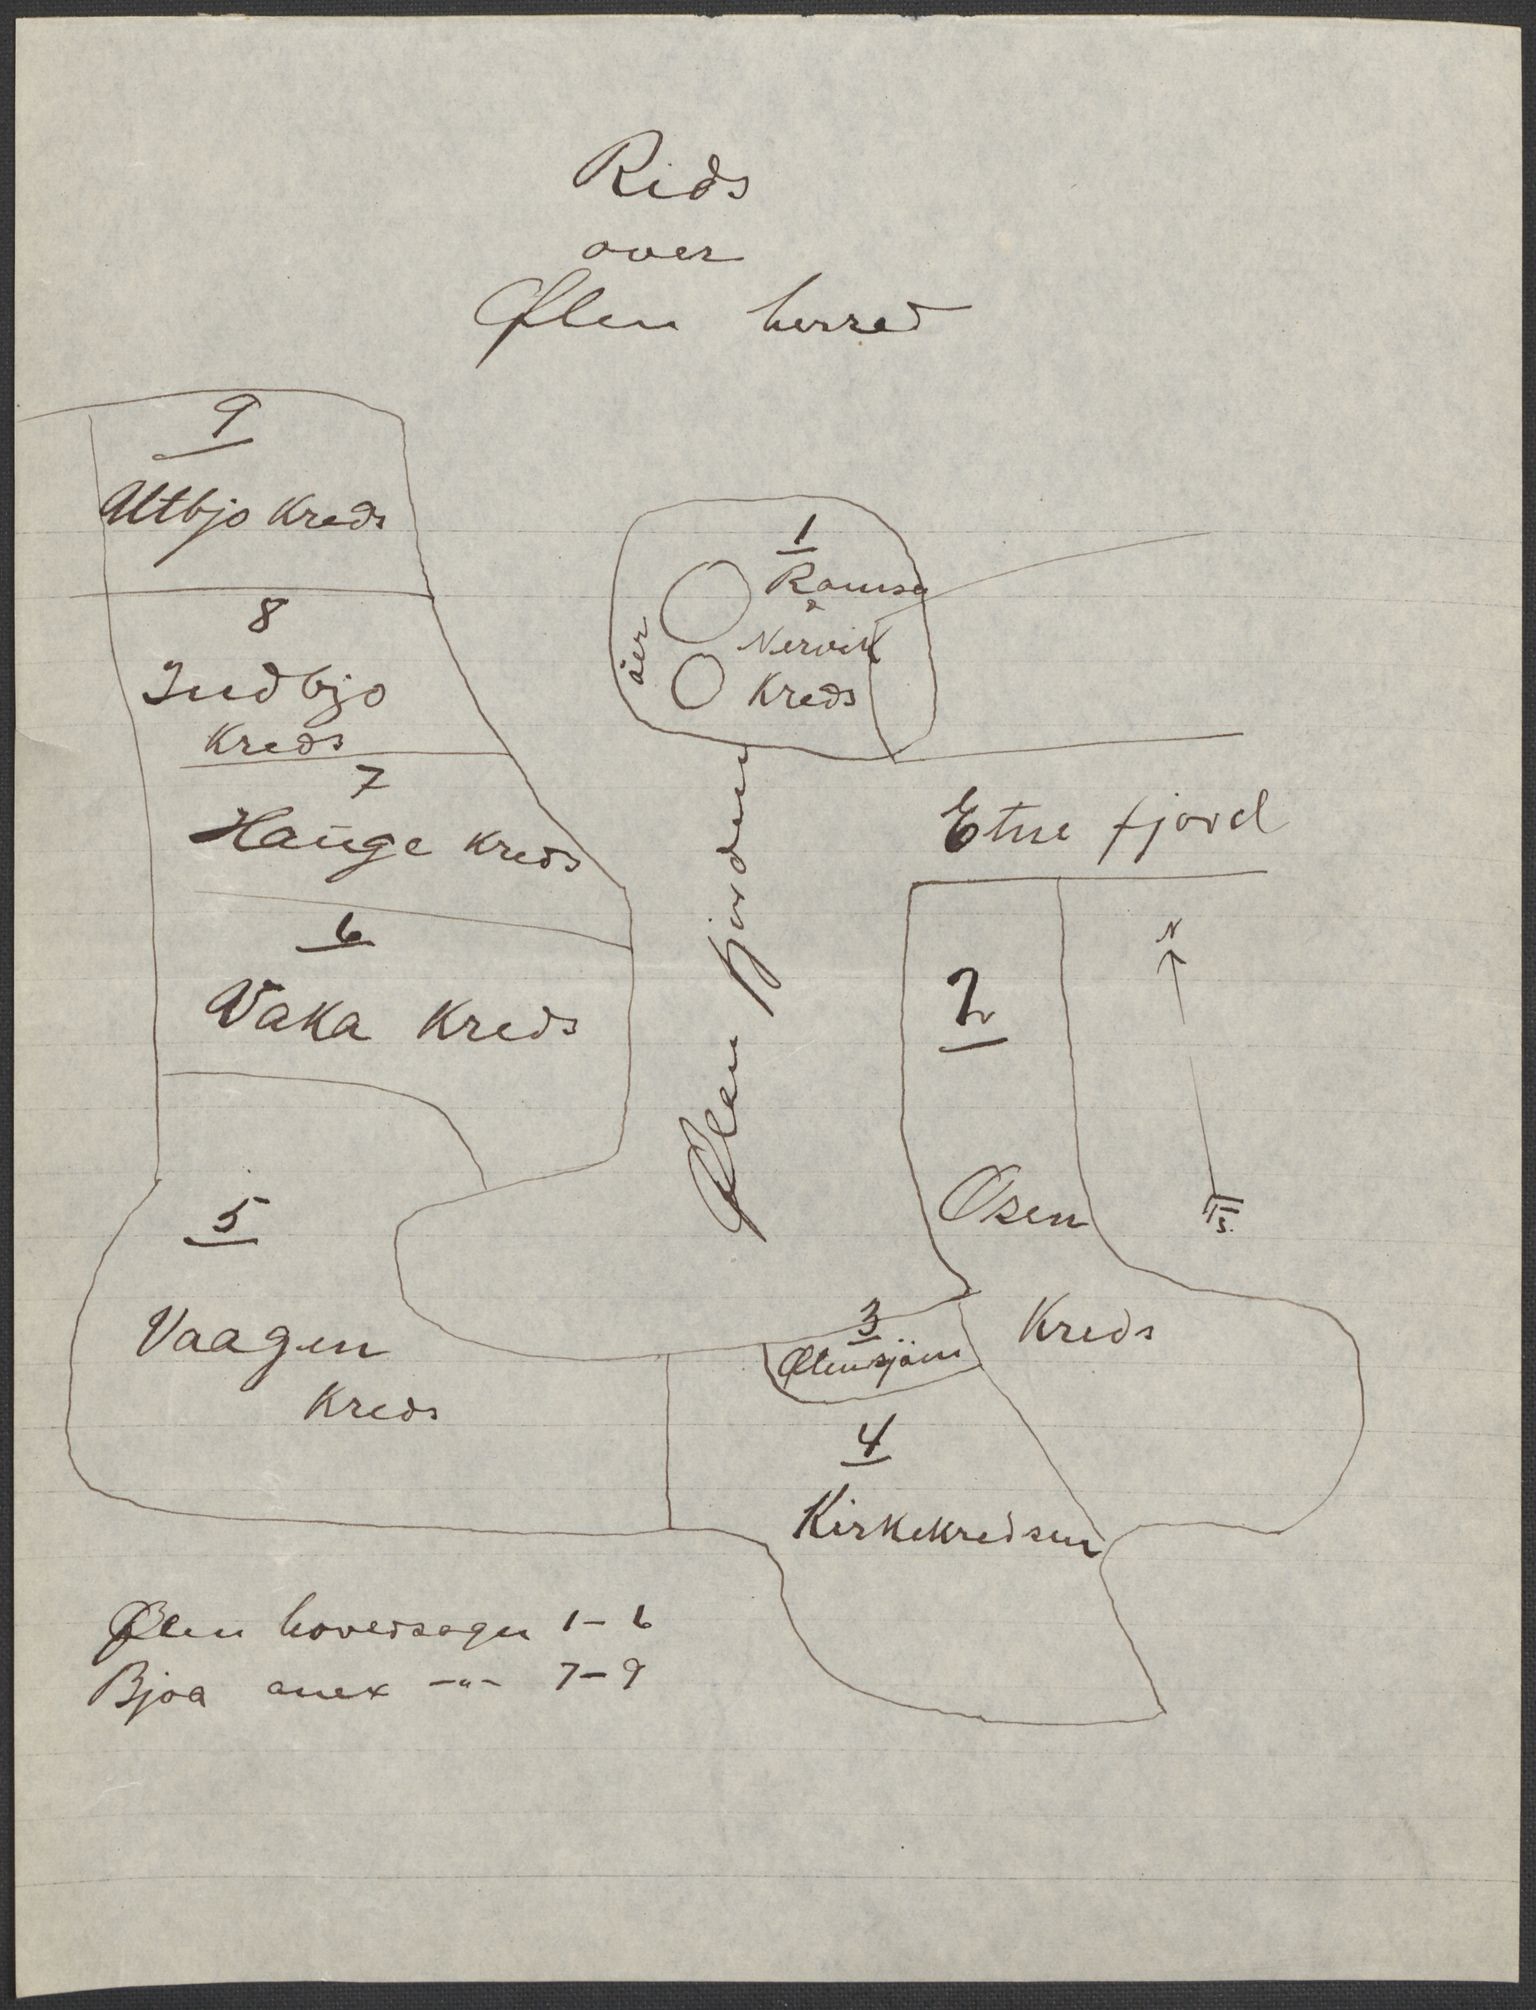 Rids
over
Ølen herred
9
Utbjo Kreds
8
Indbjo
Kreds
7
Hauge Kreds
6
Vaka Kreds
5
Vaagen
Kreds
1
Romsa
&
Nervik
Kreds
öer
Ølen fjorden
Etne fjord
N
S.
2
Øsen
Kreds
3
Ølensjöen
4
Kirkekredsen
Ølen hovedsogn 1–6
Bjoa anex –"– 7–9